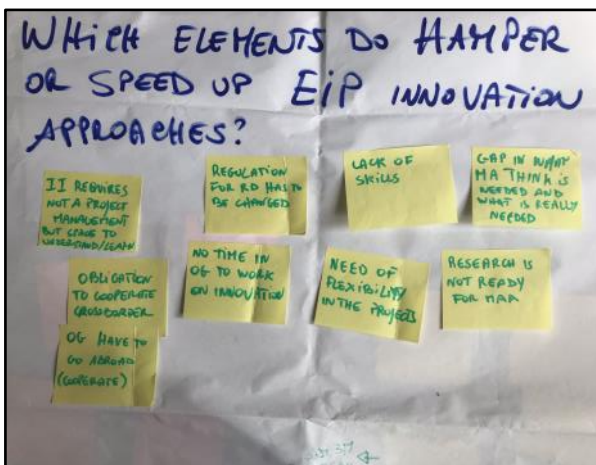 WHICH ELEMENTS DO HAMPER
OR SPEED UP EIP INNOVATION
APPROACHES?
II REQUIRES
NOT A PROJECT
MANAGEMENT
BUT SPACE TO
UNDERSTAND/LEARN
REGULATION
FOR RD HAS TO
BE CHANGED
LACK OF
SKILLS
GAP IN WHAT
MA THINK IS
NEEDED AND
WHAT IS REALLY
NEEDED
OBLIGATION
TO COOPERATE
CROSSBORDER
NO TIME IN
OG TO WORK
ON INNOVATION
NEED OF
FLEXIBILITY
IN THE PROJECTS
RESEARCH IS
NOT READY
FOR MAA
OG HAVE TO
GO ABROAD
(COOPERATE)